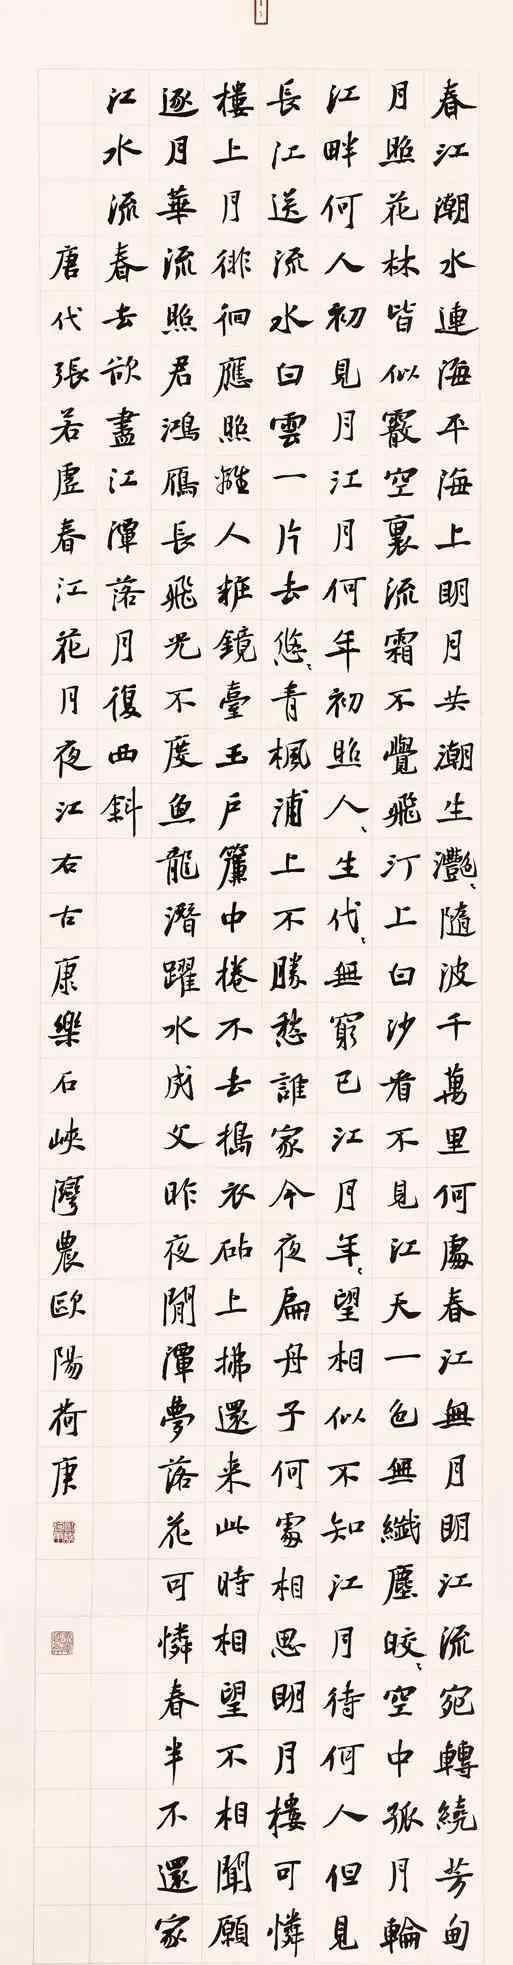 春江潮水連海平海上明月共潮生灩〻隨波千萬里何處春江無月明江流宛轉繞芳甸
月照花林皆似霰空裏流霜不覺飛汀上白沙看不見江天一色無纖塵皎〻空中孤月輪
江畔何人初見月江月何年初照人〻生代〻無窮已江月年〻望相似不知江月待何人但見
長江送流水白雲一片去悠〻青楓浦上不勝愁誰家今夜扁舟子何處相思明月樓可憐
樓上月徘徊應照離人粧鏡臺玉戶簾中捲不去搗衣砧上拂還来此時相望不相聞願
逐月華流照君鴻雁長飛光不度魚龍潛躍水成文昨夜閒潭夢落花可憐春半不還家
江水流春去欲盡江潭落月復西斜
唐代張若虛春江花月夜江右古康樂石峽灣農歐陽荷庚